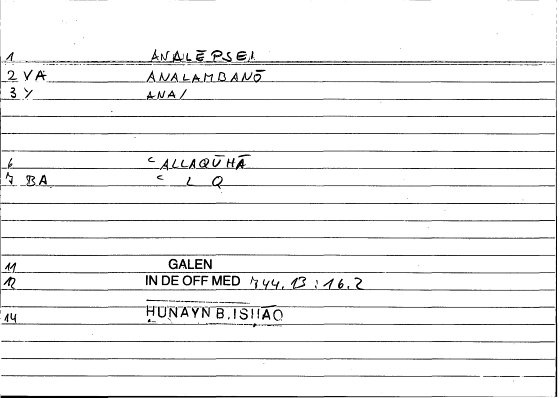 1 ANALĒPSEI
2 VA ANALAMBANŌ
3 Y ANA/
6 ʿALLAQŪHĀ
7 BA ʿ L Q
11 GALEN
12 IN DE OFF MED 744,13 : 16,2
14 ḤUNAYN B. ISḤĀQ